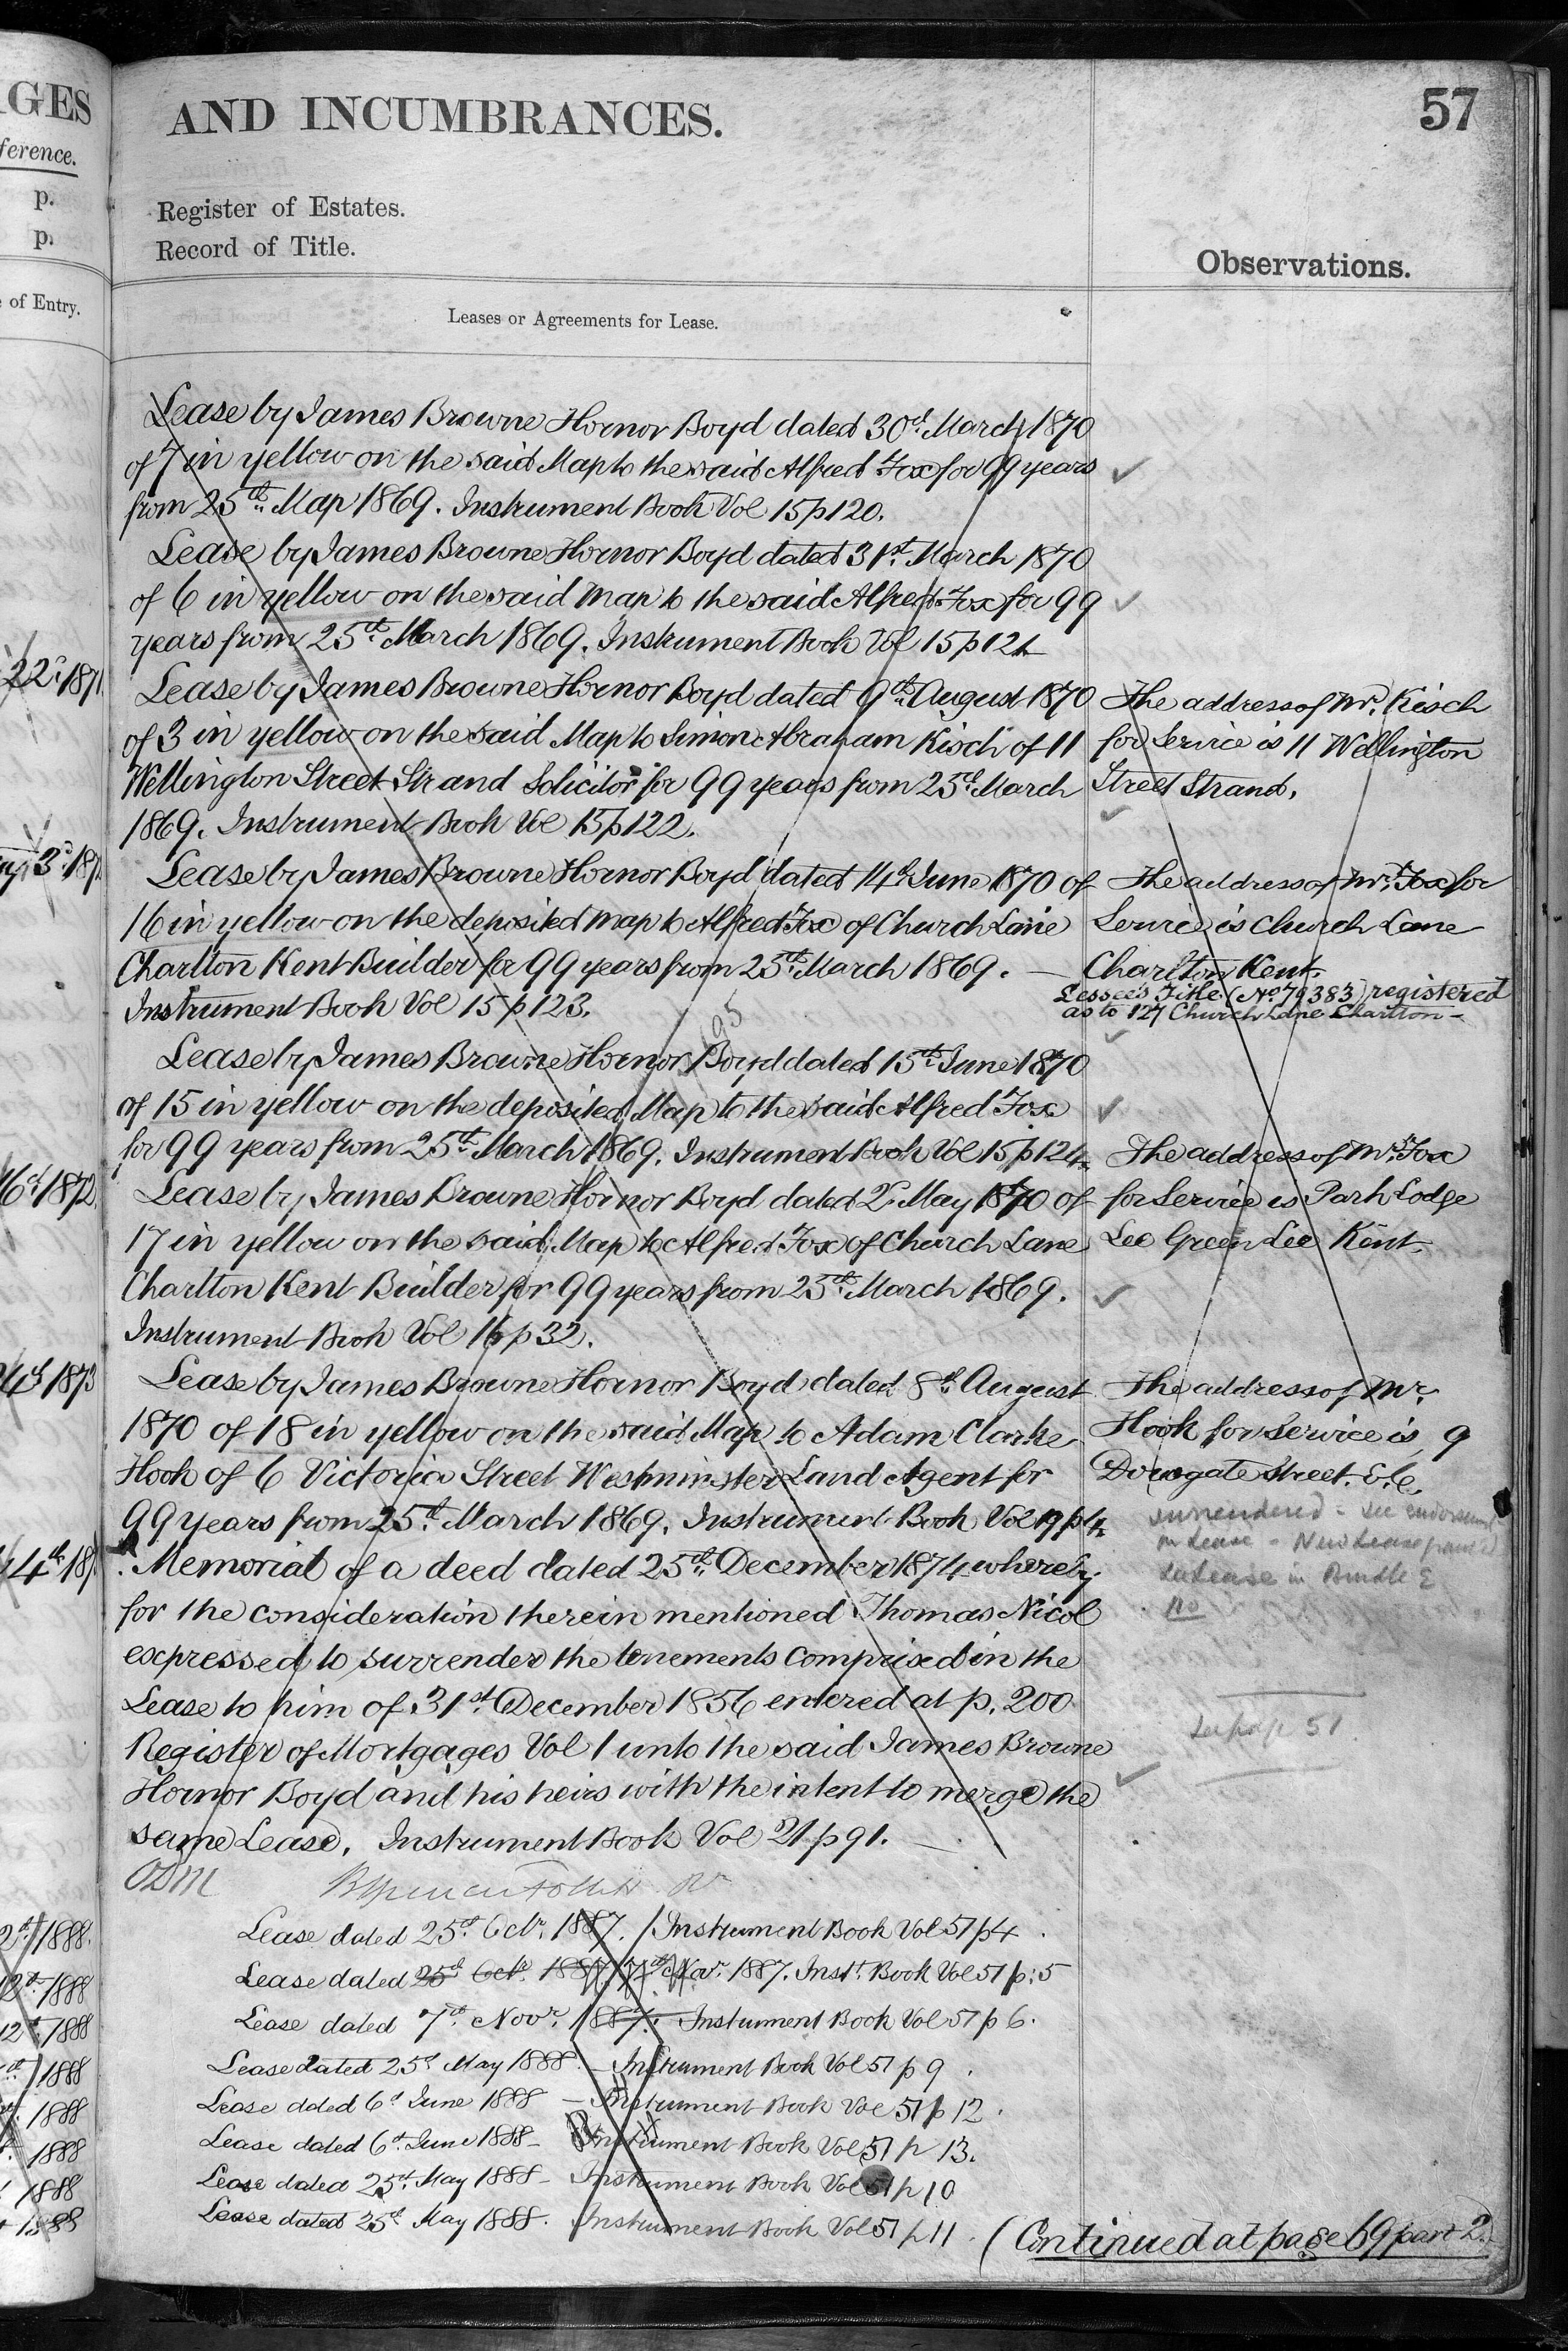 AGES
ference.
p.
p.
of Entry.
22d 1871
3d 187
6th 1872
4th 1873
4th 187
1888.
12th 1888
12th 1888
1888
1888
1888
1888
1888
AND INCUMBRANCES.
57
Register of Estates.
Record of Title.
Observations.
Leases or Agreements for Lease.
Lease by James Browne Hornor Boyd dated 30th March 1870
of 7 in yellow on the said Map to the said Alfred Fox for 99 years
from 25th Map 1869. Instrument Book Vol 15 p 120.
Lease by James Browne Hornor Boyd dated 31st March 1870
of 6 in yellow on the said Map to the said Alfred Fox for 99
years from 25th March 1869. Instrument Book Vol 15 p 121
Lease by James Browne Hornor Boyd dated 9th August 1870
of 3 in yellow on the said Map to Simon Abraham Kisch of 11
Wellington Street Strand Solicitor for 99 years from 25th March
1869. Instrument Book Vol 15 p 122.
The address of Mr. Kisch
for Service is 11 Wellington
Street Strand.
Lease by James Browne Hornor Boyd dated 14th June 1870 of
16 in yellow on the deposited Map to Alfred Fox of Church Lane
Charlton Kent Builder for 99 years from 25th March 1869. —
Instrument Book Vol 15 p 123.
The address of Mr. Fox for
Service is Church Lane
Charlton Kent.
Lessee's Title (No 79383) registered
as to 127 Church Lane Charlton -
Lease by James Browne Hornor Boyd dated 15th June 1870
of 15 in yellow on the deposited Map to the said Alfred Fox
for 99 years from 25th March 1869. Instrument Book Vol 15 p 124.
Lease by James Browne Hornor Boyd dated 2d May 1870 of
17 in yellow on the said Map to Alfred Fox of Church Lane
Charlton Kent Builder for 99 years from 25th March 1869.
Instrument Book Vol 16 p 32.
The address of Mr. Fox
for Service is Park Lodge
Lee Green Lee Kent.
Lease by James Browne Hornor Boyd dated 8th August
1870 of 18 in yellow on the said Map to Adam Clarke
Hook of 6 Victoria Street Westminster Land Agent for
99 years from 25th March 1869. Instrument Book Vol 19 p 4.
The address of Mr.
Hook for Service is 9
Dowgate Street. E.C.
surrendered - see endorsement
on Lease - New Lease granted
see Lease in Bundle E
no
Memorial of a deed dated 25th December 1874 whereby
for the consideration therein mentioned Thomas Nicol
expressed to surrender the tenements comprised in the
Lease to him of 31st December 1856 entered at p. 200
Register of Mortgages Vol 1 unto the said James Browne
Hornor Boyd and his heirs with the intent to merge the
same Lease. Instrument Book Vol 21 p 91. —
See page 51
Lease dated 25th Octr. 1887. Instrument Book Vol 51 p 4
Lease dated 25th Octr. 1887 7th Novr. 1887. Instt. Book Vol 51 p. 5
Lease dated 7th Novr. 1887. Instrument Book Vol 51 p 6.
Lease dated 25th May 1888. — Instrument Book Vol 51 p 9.
Lease dated 6th June 1888 — Instrument Book Vol 51 p 12.
Lease dated 6th June 1888 - Instrument Book Vol 51 p 13.
Lease dated 25th May 1888 - Instrument Book Vol 51 p 10
Lease dated 25th May 1888. Instrument Book Vol 51 p 11.
(Continued at page 69 part 2.)